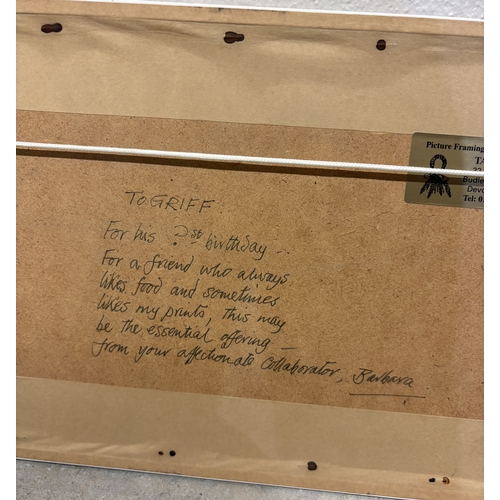 Picture Framing
TA
Budle
Devo
Tel: 0
TO GRIFF
For his ?st birthday --
For a friend who always
likes food and sometimes
likes my prints, this may
be the essential offering —
from your affectionate collaborator, Barbara